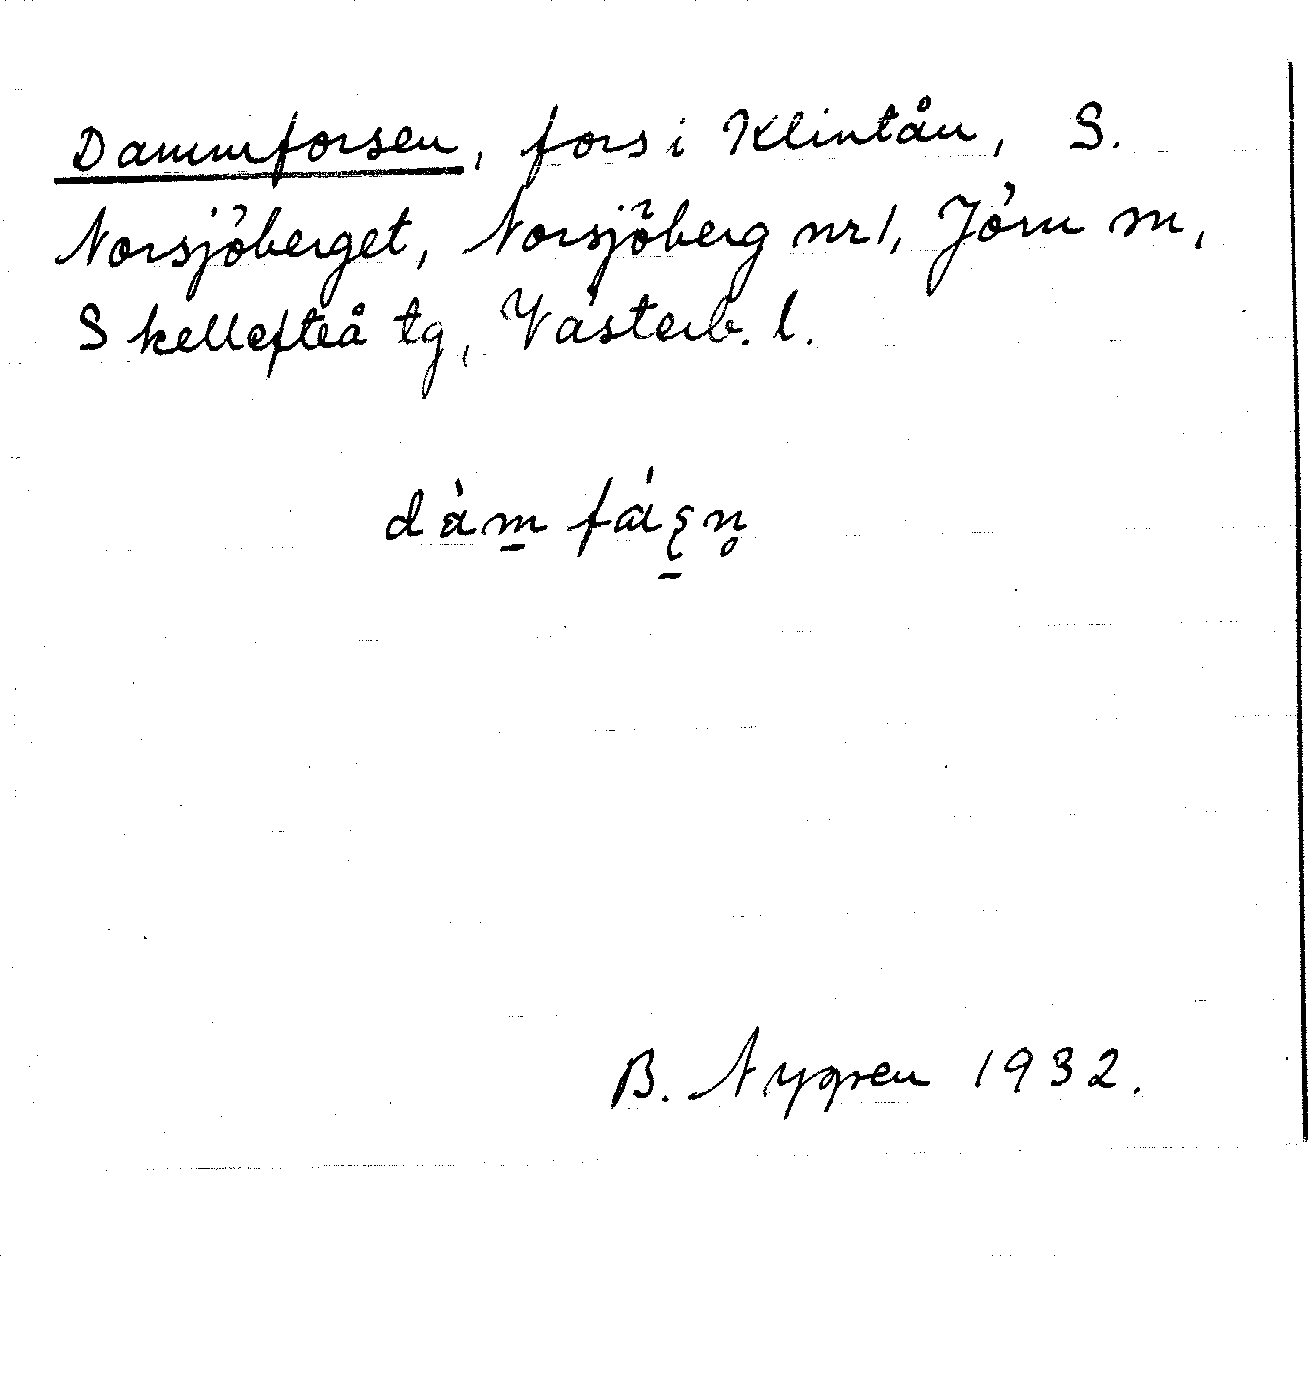 Dammforsen, fors i Klintån, S.
Norsjöberget, Norsjöberg nr 1, Jörn sn,
Skellefteå tg, Västerb. l.
dàm̱ fáʂ̱n̥
B. Nygren 1932.